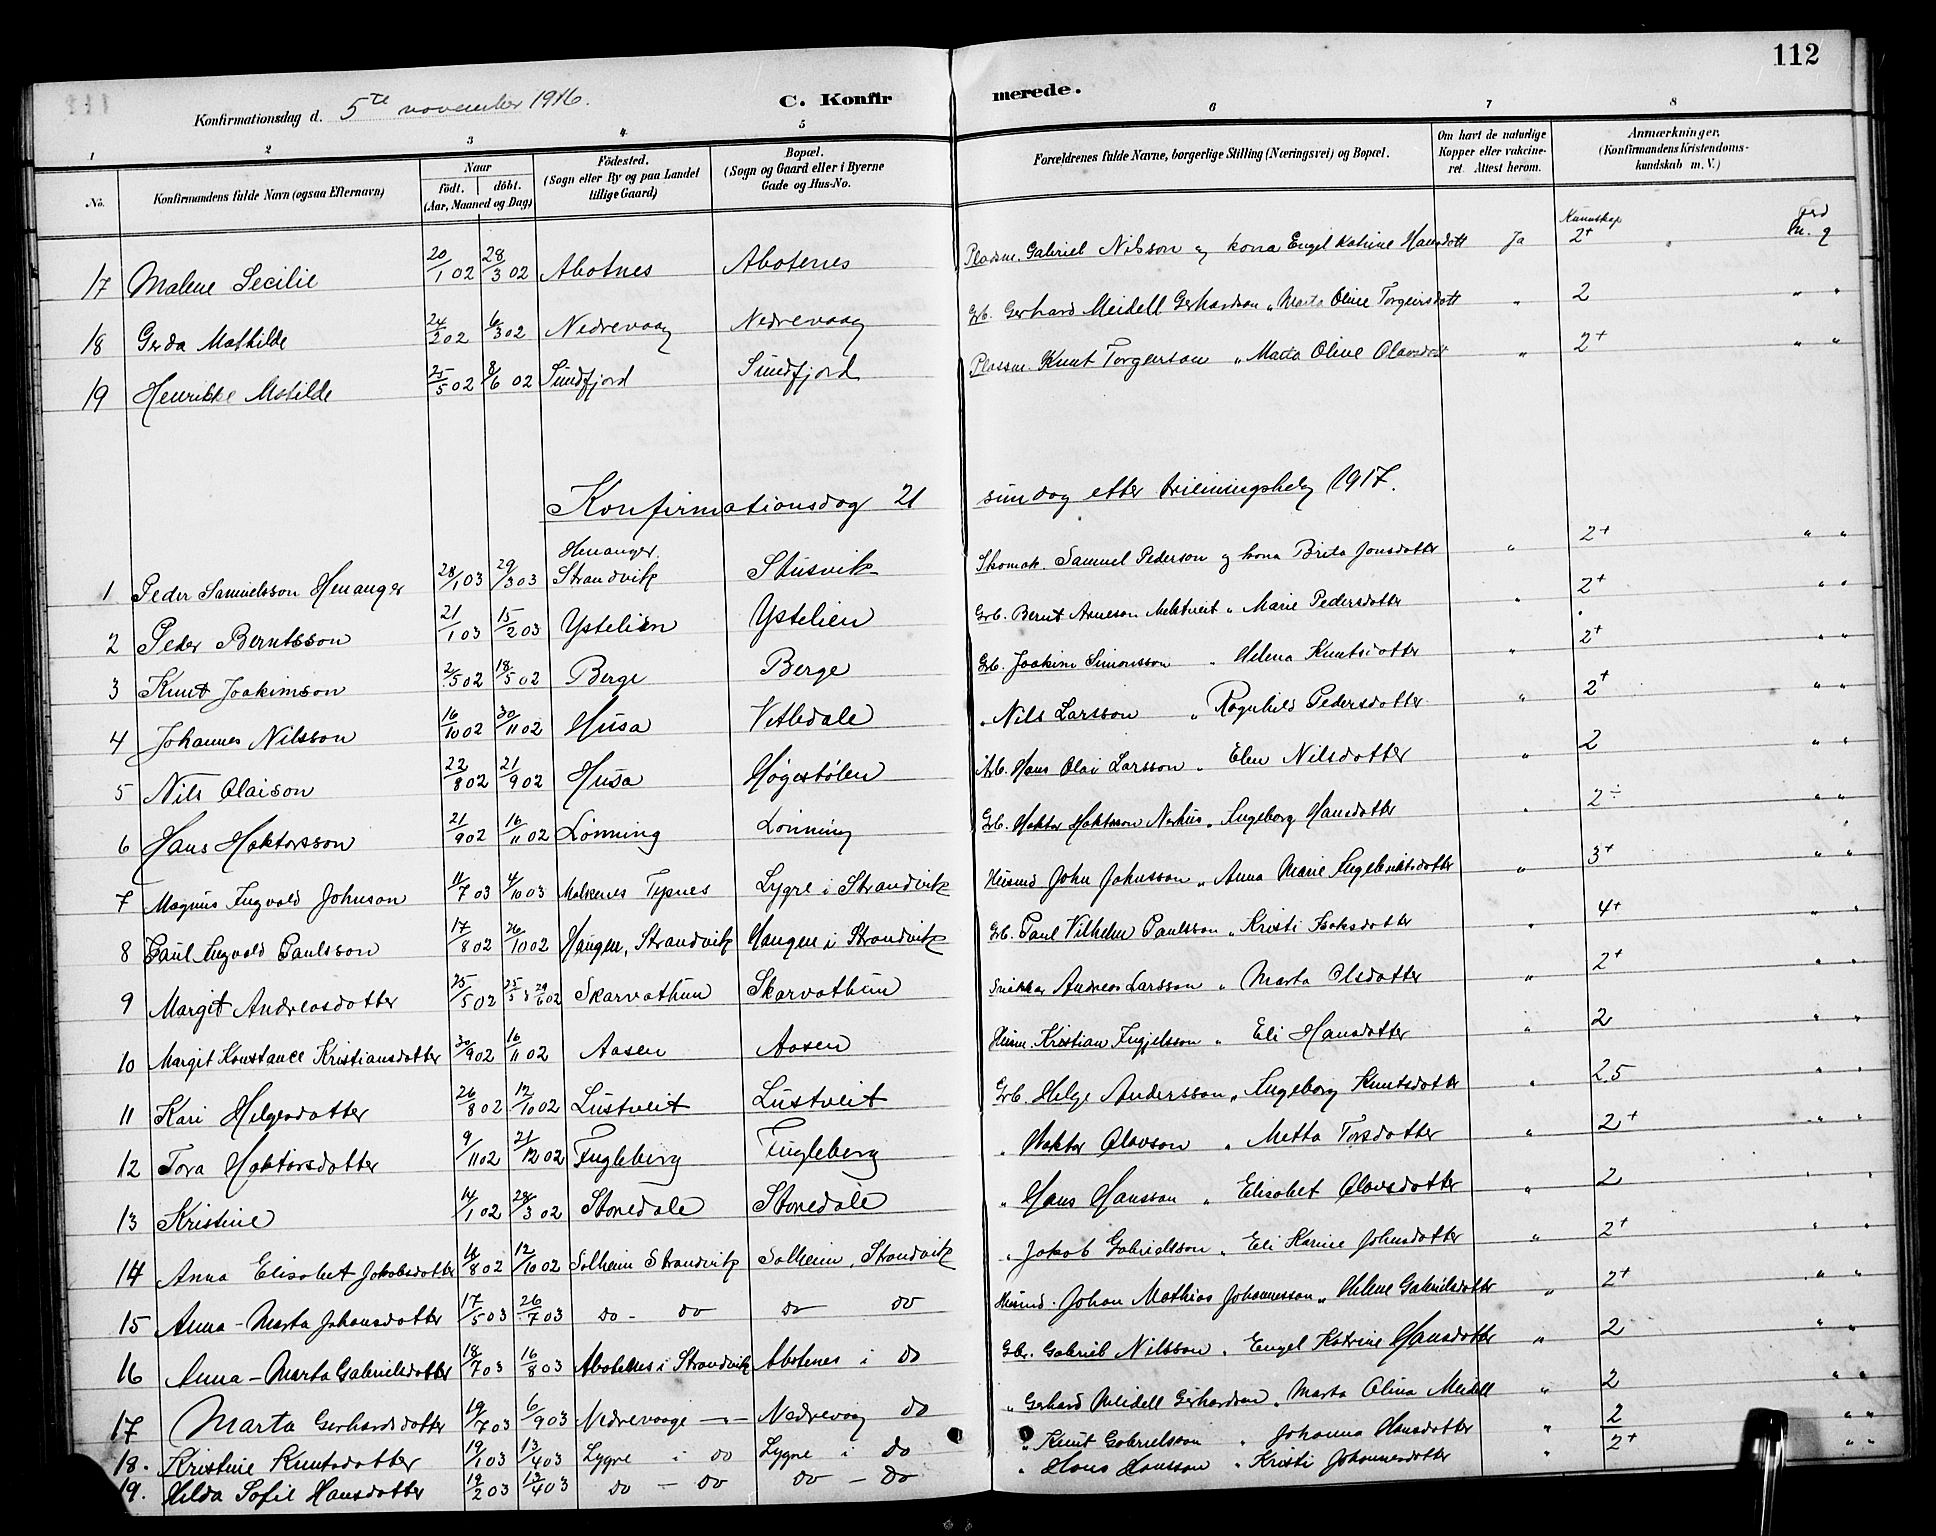 112
Konfirmationsdag d. 5te november 1916. C. Konfirmerede.
1 2 3 4 5 6 7 8
No. Konfirmandens fulde Navn (ogsaa Efternavn) Naar födt. döbt. (Aar, Maaned og Dag) Födested. (Sogn eller By og paa Landet tillige Gaard) Bopæl. (Sogn og Gaard eller i Byerne Gade og Hus-No. Forældrenes fulde Navne, borgerlige Stilling (Næringsvei) og Bopæl. Om havt de naturlige Kopper eller vakcineret. Attest herom. Anmærkninger, (Konfirmandens Kristendomskundskab m. V.)
Kunnskap
17 Malene Secilie 20/1 02 28/3 02 Abotnes Abotenes Plassm. Gabriel Nilsson og kona Engel Katrine Hansdott Ja 2+
18 Gerda Mathilde 24/2 02 6/3 02 Nedrevaag Nedrevaag Grb. Gerhard Meidell Gerhardson " Marta Oline Torgeirsdott " 2 " "
19 Henrikke Matilde 25/5 02 8/6 02 Sundfjord Sundfjord Plassm. Knut Torgerson " Marta Oline Olavsdott " 2+ " "
Konfirmationsdag 21 sundag etter trieiningshelg 1917.
1 Peder Samuelsson Henanger 28/1 03 29/3 03 Henanger. Strandvik Stusvik Skomak. Samuel Pederson og kona Brita Jonsdotter " 2+ " "
2 Peder Berntsson 21/1 03 15/2 03 Ystelien Ystelien Grb. Bernt Arneson Melstveit " Marie Pedersdotter " 2+ " "
3 Knut Joakimson 2/5 02 18/5 02 Berge Berge Grb. Joakim Simonsson " Helena Knutsdotter " 2+ " "
4 Johannes Nilsson 16/10 02 30/11 02 Husa Vetledale " Nils Larsson " Ragnhild Pedersdotter " 2+ " "
5 Nils Olaison 22/8 02 21/9 02 Husa Høgestølen Arb. Hans Olai Larsson " Elen Nilsdotter " 2 " "
6 Hans Haktorsson 21/9 02 16/11 02 Lønning Lønning Grb. Haktor Haktorson Nerhus " Ingeborg Hansdotter " 2÷ " "
7 Magnus Ingvald Johnson 11/7 03 4/10 03 Malkenes Tysnes Lygre i Strandvik Husmd John Johnsson " Anna Marie Engebriktsdotter " 3+ " "
8 Paul Ingvald Paulsson 17/8 02 26/10 02 Haugen, Strandvik Haugen i Strandvik Grb. Paul Vilhelm Paulsson " Kristi Isaksdotter " 4+ " "
9 Margit Andreasdotter 25/5 02 29/6 02 Skarvathun Skarvathun Snikkar Andreas Larsson " Marta Olsdotter " 2+ " "
10 Margit Konstance Kristiansdotter 30/9 02 16/11 02 Aasen Aasen Husm. Kristian Ingjelsson " Eli Hansdotter " 2 " "
11 Kari Helgesdotter 26/8 02 12/10 02 Lustveit Lustveit Grb. Helge Andersson " Ingeborg Knutsdotter " 2.5 " "
12 Tora Haktorsdotter 9/11 02 21/12 02 Fugleberg Fugleberg " Haktor Olavson " Metta Torsdotter " 2+ " "
13 Kristine 14/1 02 28/3 02 Storedale Storedale " Hans Hansson " Elisabet Olavsdotter " 2 " "
14 Anna Elisabet Jakobsdotter 16/8 02 12/10 02 Solheim Strandvik Solheim, Strandvik " Jakob Gabrielsson " Eli Karine Johnsdotter " 2+ " "
15 Anna-Marta Johansdotter 17/5 03 26/7 03 do - do do do Husmd. Johan Mathias Johannesson " Helene Gabrielsdotter " 2+ " "
16 Anna-Marta Gabrielsdotter 18/7 03 16/8 03 Abotenes i Strandvik Abotenes i do Gbr. Gabriel Nilsson " Engel Katrine Hansdotter " 2 " "
17 Marta Gerhardsdotter 19/7 03 6/9 03 Nedrevaage -"- Nedrevaag do " Gerhard Meidell Gerhardson " Marta Olina Meidell " 2 " "
18. Kristine Knutsdotter 19/1 03 13/4 03 Lygre i do Lygre i do " Knut Gabrielsson " Johanna Hansdotter " 2 " "
19. Hilda Sofie Hansdotter 19/2 03 13/4 03 do - do do - do " Hans Hansson " Kristi Johannesdotter " 2+ " "